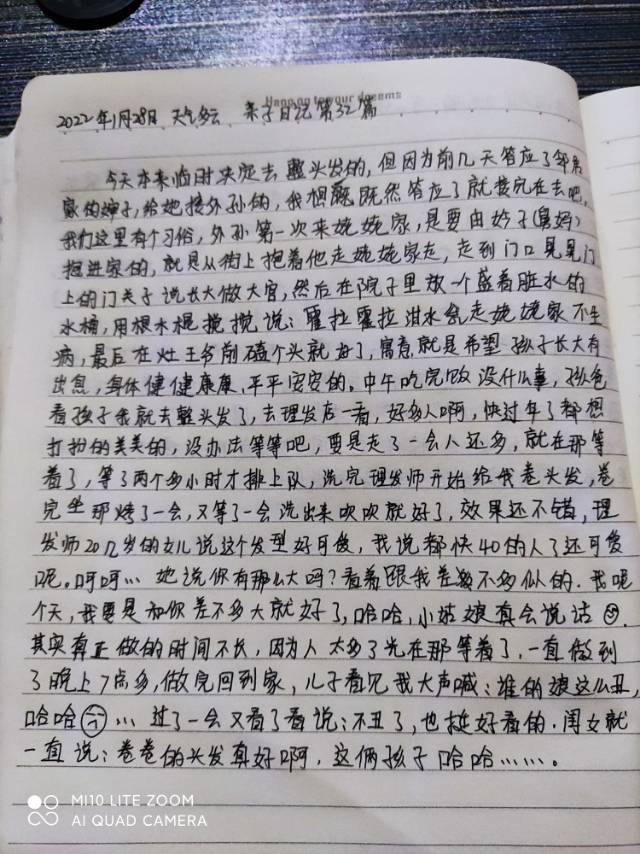 Hang on to your dreams
2022年1月28日 天气多云 亲子日记第32篇
今天本来临时决定去整头发的,但因为前几天答应了邻居
家的婶子,给她接外孙的,我想既然答应了就接完在去吧,
我们这里有个习俗,外孙第一次来姥姥家,是要由妗子(舅妈)
抱进家的,就是从街上抱着他走姥姥家走,走到门口晃晃门
上的门关子说长大做大官,然后在院子里放一个盛着脏水的
水桶,用根木棍搅搅说:霍拉霍拉泔水瓮走姥姥家不生
病,最后在灶王爷前磕个头就好了,寓意就是希望孩子长大有
出息,身体健健康康,平平安安的。中午吃完饭没什么事,孩爸
看孩子我就去整头发了,去理发店一看,好多人啊,快过年了都想
打扮的美美的,没办法等等吧,要是走了一会人还多,就在那等
着了,等了两个多小时才排上队,洗完理发师开始给我卷头发,卷
完坐那烤了一会,又等了一会洗出来吹吹就好了,效果还不错,理
发师20几岁的女儿说这个发型好可爱,我说都快40的人了还可爱
呢。呵呵… 她说你有那么大吗?看着跟我差不多似的.我呢
个天,我要是和你差不多大就好了,哈哈,小姑娘真会说话.
其实真正做的时间不长,因为人太多了光在那等着了,一直做到
了晚上7点多,做完回到家,儿子看见我大声喊:谁的娘这么丑
哈哈… 过了一会又看了看说:不丑了,也挺好看的.闺女就
一直说:卷卷的头发真好啊,这俩孩子哈哈……。
MI 10 LITE ZOOM
AI QUAD CAMERA